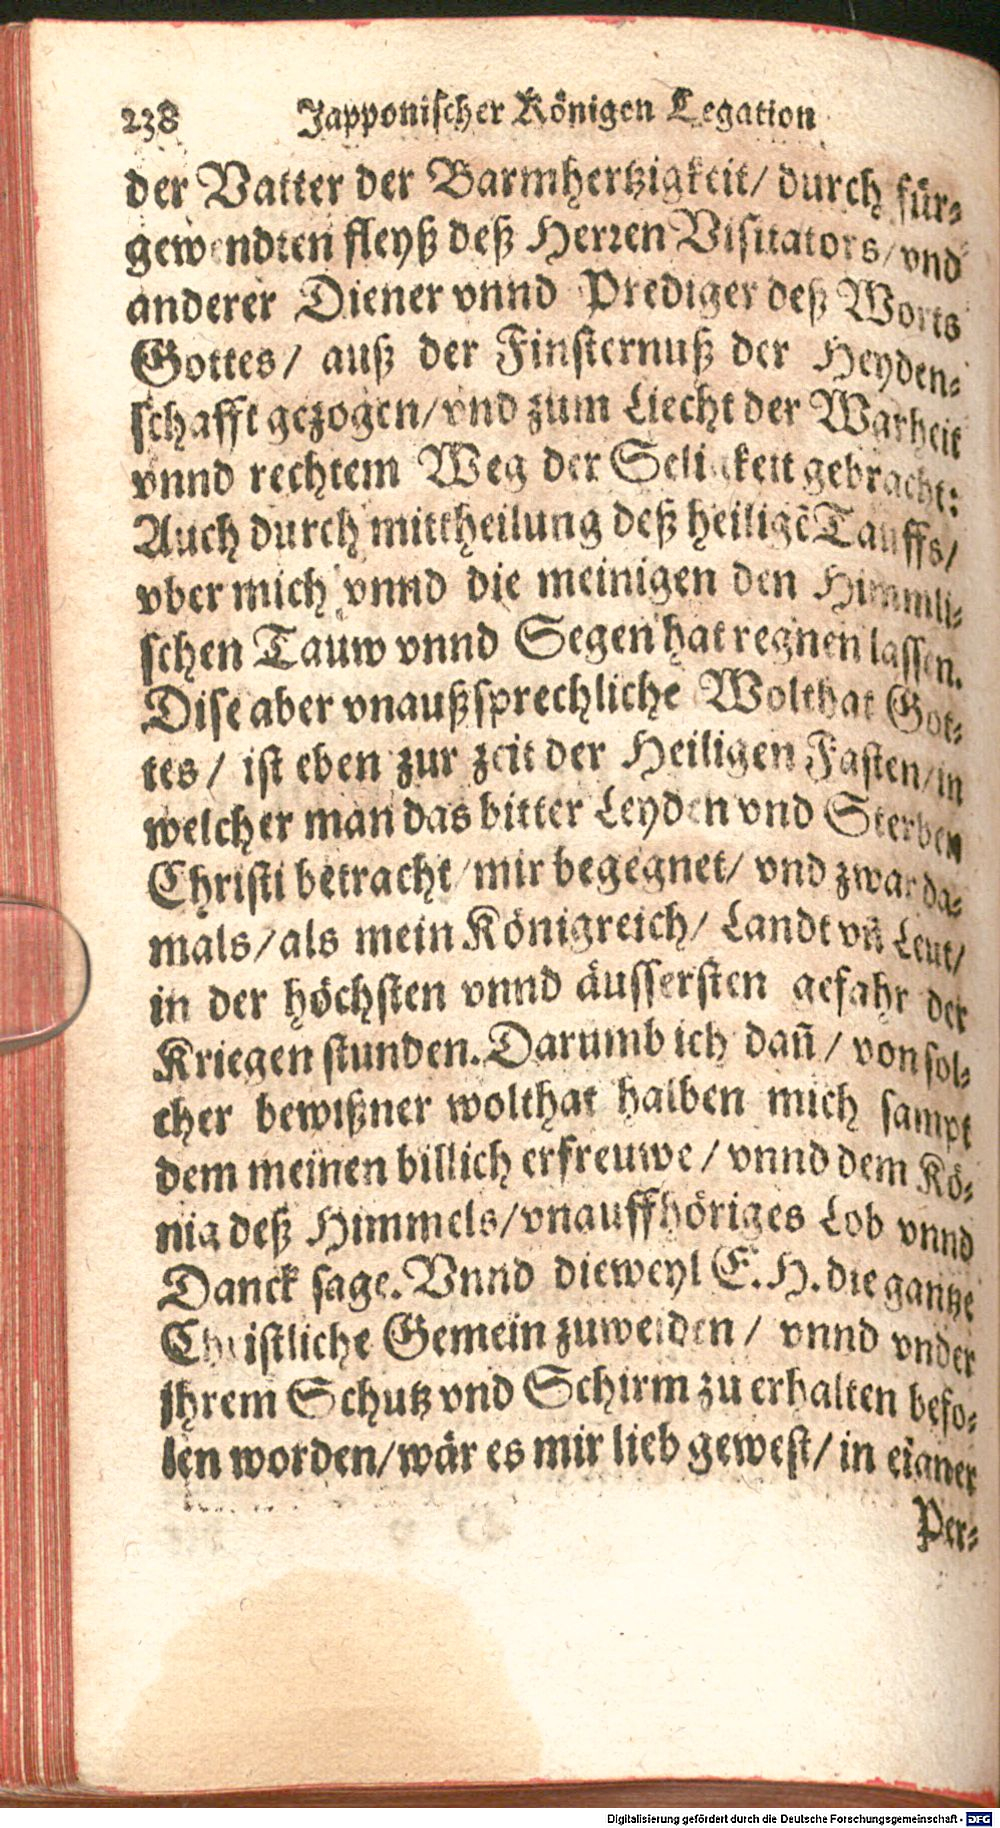 238 Japponischer Königen Legation
der Vatter der Barmhertzigkeit/ durch für-
gewendten fleyß deß Herren Visitators/ vnd
anderer Diener vnnd Prediger deß Worts
Gottes/ auß der Finsternuß der Heyden-
schafft gezogen/ vnd zum Liecht der Warheit
vnnd rechtem Weg der Seligkeit gebracht:
Auch durch mittheilung deß heiligē Tauffs/
vber mich vnnd die meinigen den Himmli-
schen Tauw vnnd Segen hat regnen lassen.
Dise aber vnaußsprechliche Wolthat Got-
tes/ ist eben zur zeit der Heiligen Fasten/ in
welcher man das bitter Leyden vnd Sterben
Christi betracht/ mir begegnet/ vnd zwar da-
mals/ als mein Königreich/ Landt vñ Leut/
in der höchsten vnnd äussersten gefahr der
Kriegen stunden. Darumb ich dañ/ von sol-
cher bewißner wolthat halben mich sampt
dem meinen billich erfreuwe/ vnnd dem Kö-
nig deß Himmels/ vnauffhöriges Lob vnnd
Danck sage. Vnnd dieweyl E. H. die gantze
Christliche Gemein zuweiden/ vnnd vnder
jhrem Schutz vnd Schirm zu erhalten befo-
len worden/ wär es mir lieb gewest/ in eigner
Per-
Digitalisierung gefördert durch die Deutsche Forschungsgemeinschaft - DFG